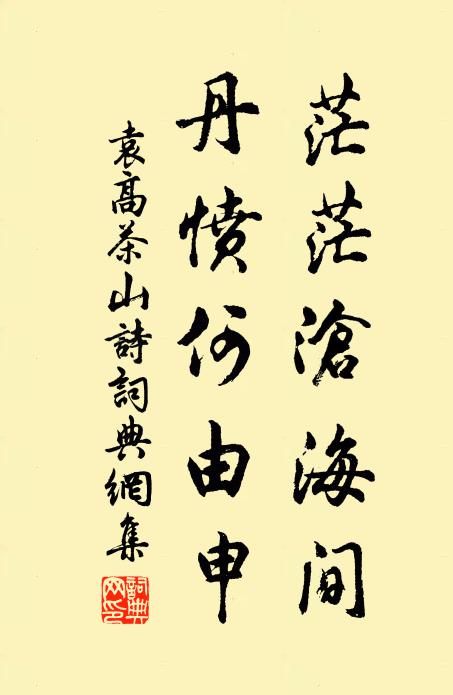 茫茫滄海間
丹憤何由申
袁高茶山詩詞典網集
詞典網印